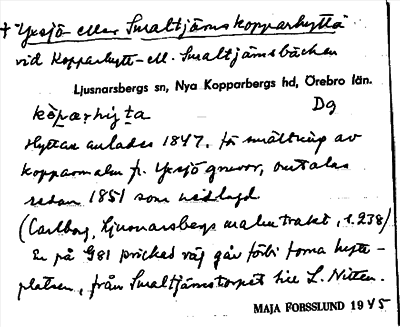 † Yxsjö- eller Smaltjärns kopparhytta
vid Kopparhytt- ell. Smaltjärnsbäcken
Ljusnarsbergs sn, Nya Kopparbergs hd, Örebro län.
Dg
Hyttan anlades 1847, för smältning av
kopparmalm fr. Yxsjö gruvor, omtalas
redan 1851 som nedlagd
(Carlborg, Ljusnarsbergs malmtrakt, s. 238)
En på G81 prickad väg går förbi forna hytt-
platsen, från Smaltjärnstorpet till L. Nitten.
MAJA FORSSLUND 1945